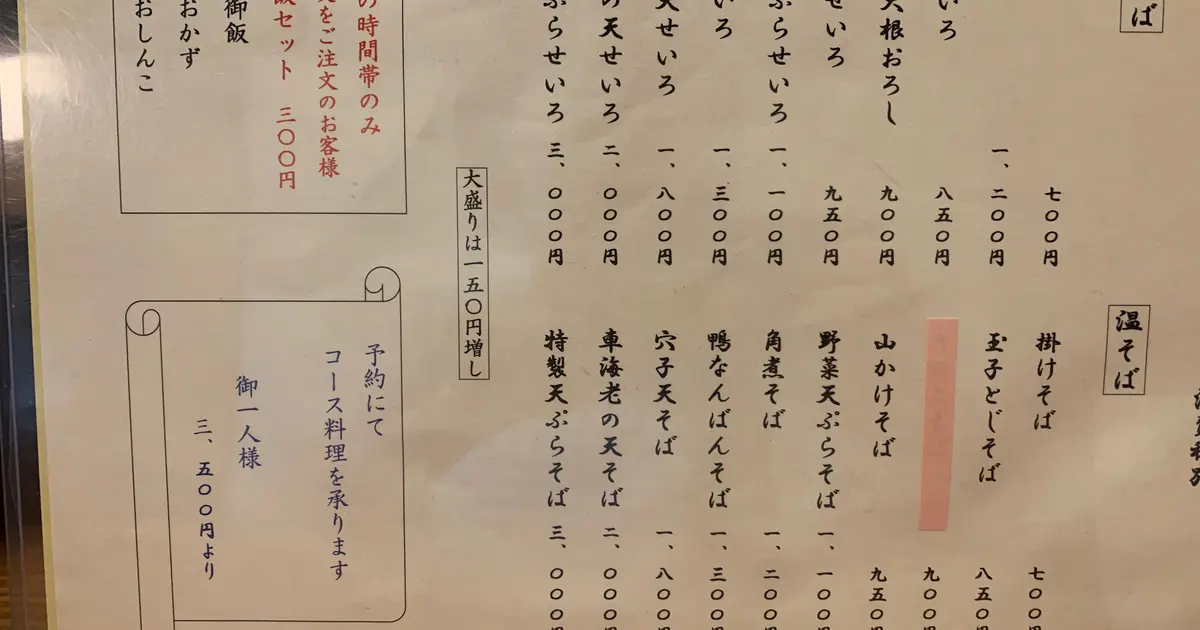 ば
七〇〇円
一、二〇〇円
いろ 八五〇円
大根おろし 九〇〇円
せいろ 九五〇円
ぷらせいろ 一、一〇〇円
いろ 一、三〇〇円
天せいろ 一、八〇〇円
の天せいろ 二、〇〇〇円
ぷらせいろ 三、〇〇〇円
温そば
掛けそば 七〇〇円
玉子とじそば 八五〇円
九〇〇円
山かけそば 九五〇円
野菜天ぷらそば 一、一〇〇円
角煮そば 一、二〇〇円
鴨なんばんそば 一、三〇〇円
穴子天そば 一、八〇〇円
車海老の天そば 二、〇〇〇円
特製天ぷらそば 三、〇〇〇円
大盛りは一五〇円増し
の時間帯のみ
をご注文のお客様
飯セット 三〇〇円
御飯
おかず
おしんこ
予約にて
コース料理を承ります
御一人様
三、五〇〇円より